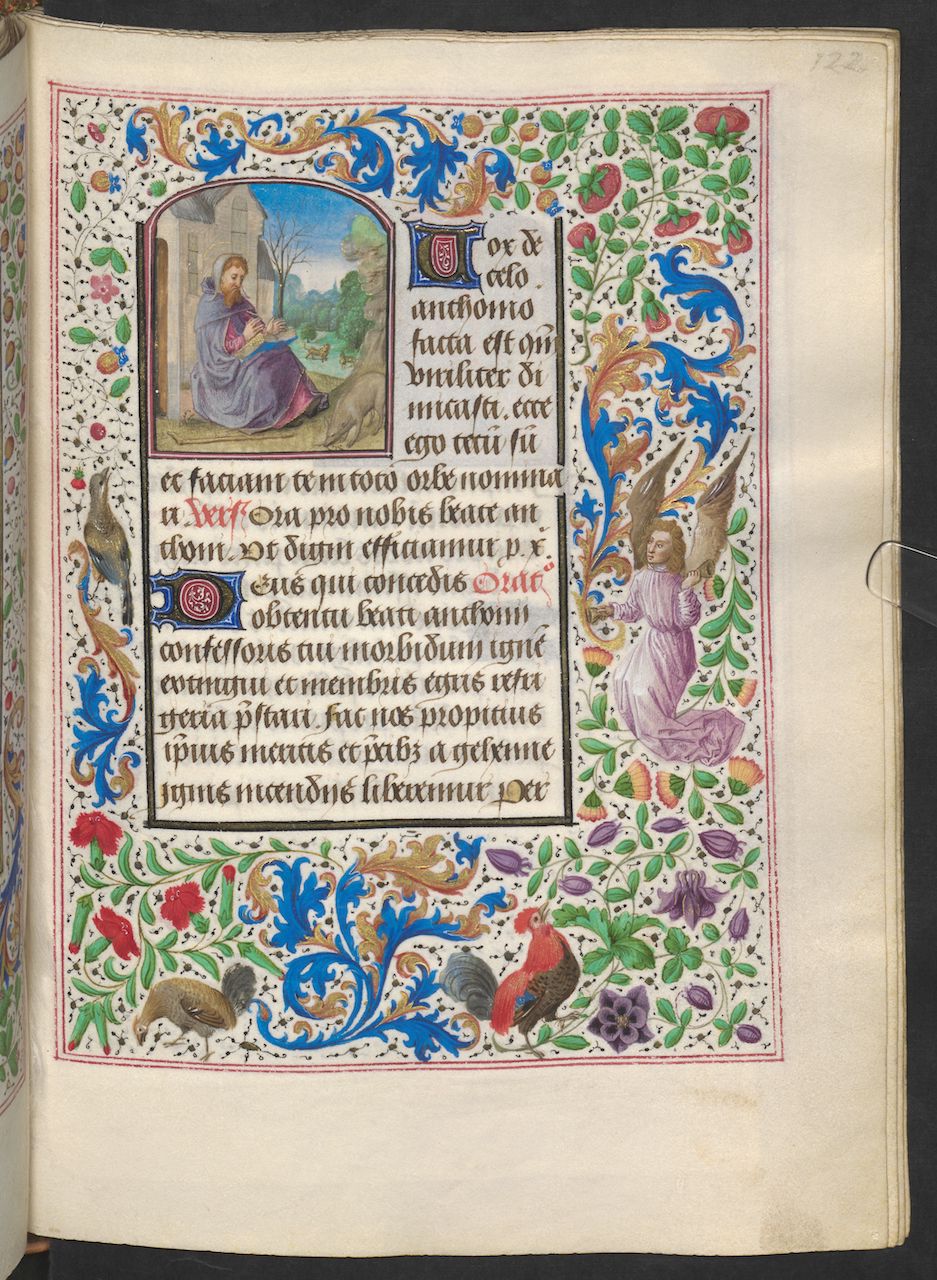 122
Vox de
celo
anthonio
facta est qm̄
viriliter di
micasti. ecce
ego tecū sū
et faciam te in toto orbe nomina
ri Vers. Ora pro nobis beate an
thoni. Vt digni efficiamur p. x.
Deus qui concedis Orat͞
obtentu beati anthonii
confessoris tui morbidum igne
extingui et membris egris refri
geria p̄stari. fac nos propitius
ip̄ius meritis et p̄cibꝫ a gehenne
ignis incendijs liberemur Per